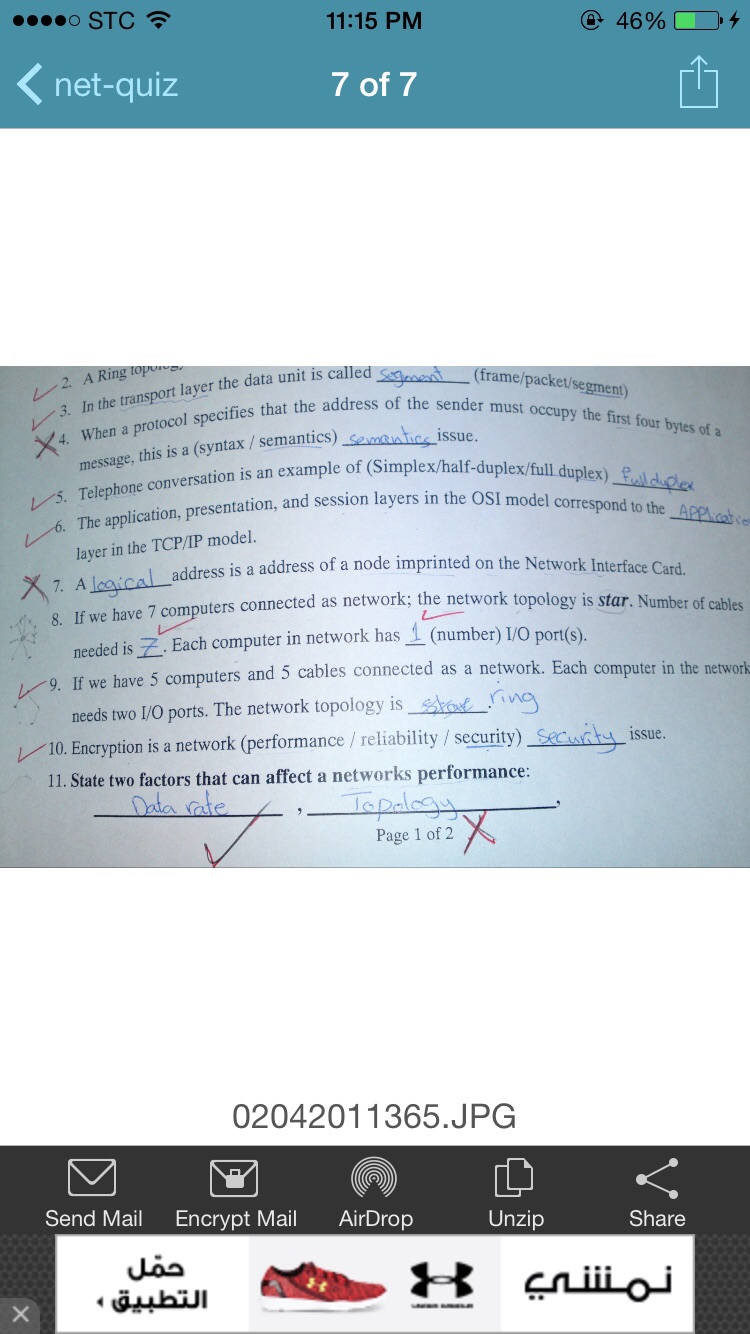 STC 11:15 PM 46%
net-quiz 7 of 7
2. A Ring
3. In the transport layer the data unit is called segment (frame/packet/segment)
4. When a protocol specifies that the address of the sender must occupy the first four bytes of a
message, this is a (syntax / semantics) semantics issue.
5. Telephone conversation is an example of (Simplex/half-duplex/full duplex) full duplex
6. The application, presentation, and session layers in the OSI model correspond to the
layer in the TCP/IP model.
7. A logical address is a address of a node imprinted on the Network Interface Card.
8. If we have 7 computers connected as network; the network topology is star. Number of cables
needed is 7. Each computer in network has 1 (number) I/O port(s).
9. If we have 5 computers and 5 cables connected as a network. Each computer in the network
needs two I/O ports. The network topology is ring
10. Encryption is a network (performance / reliability / security) Security issue.
11. State two factors that can affect a networks performance:
Data rate , Topology
Page 1 of 2
02042011365.JPG
Send Mail Encrypt Mail AirDrop Unzip Share
حمّل
التطبيق
UNDER ARMOUR
نمشي